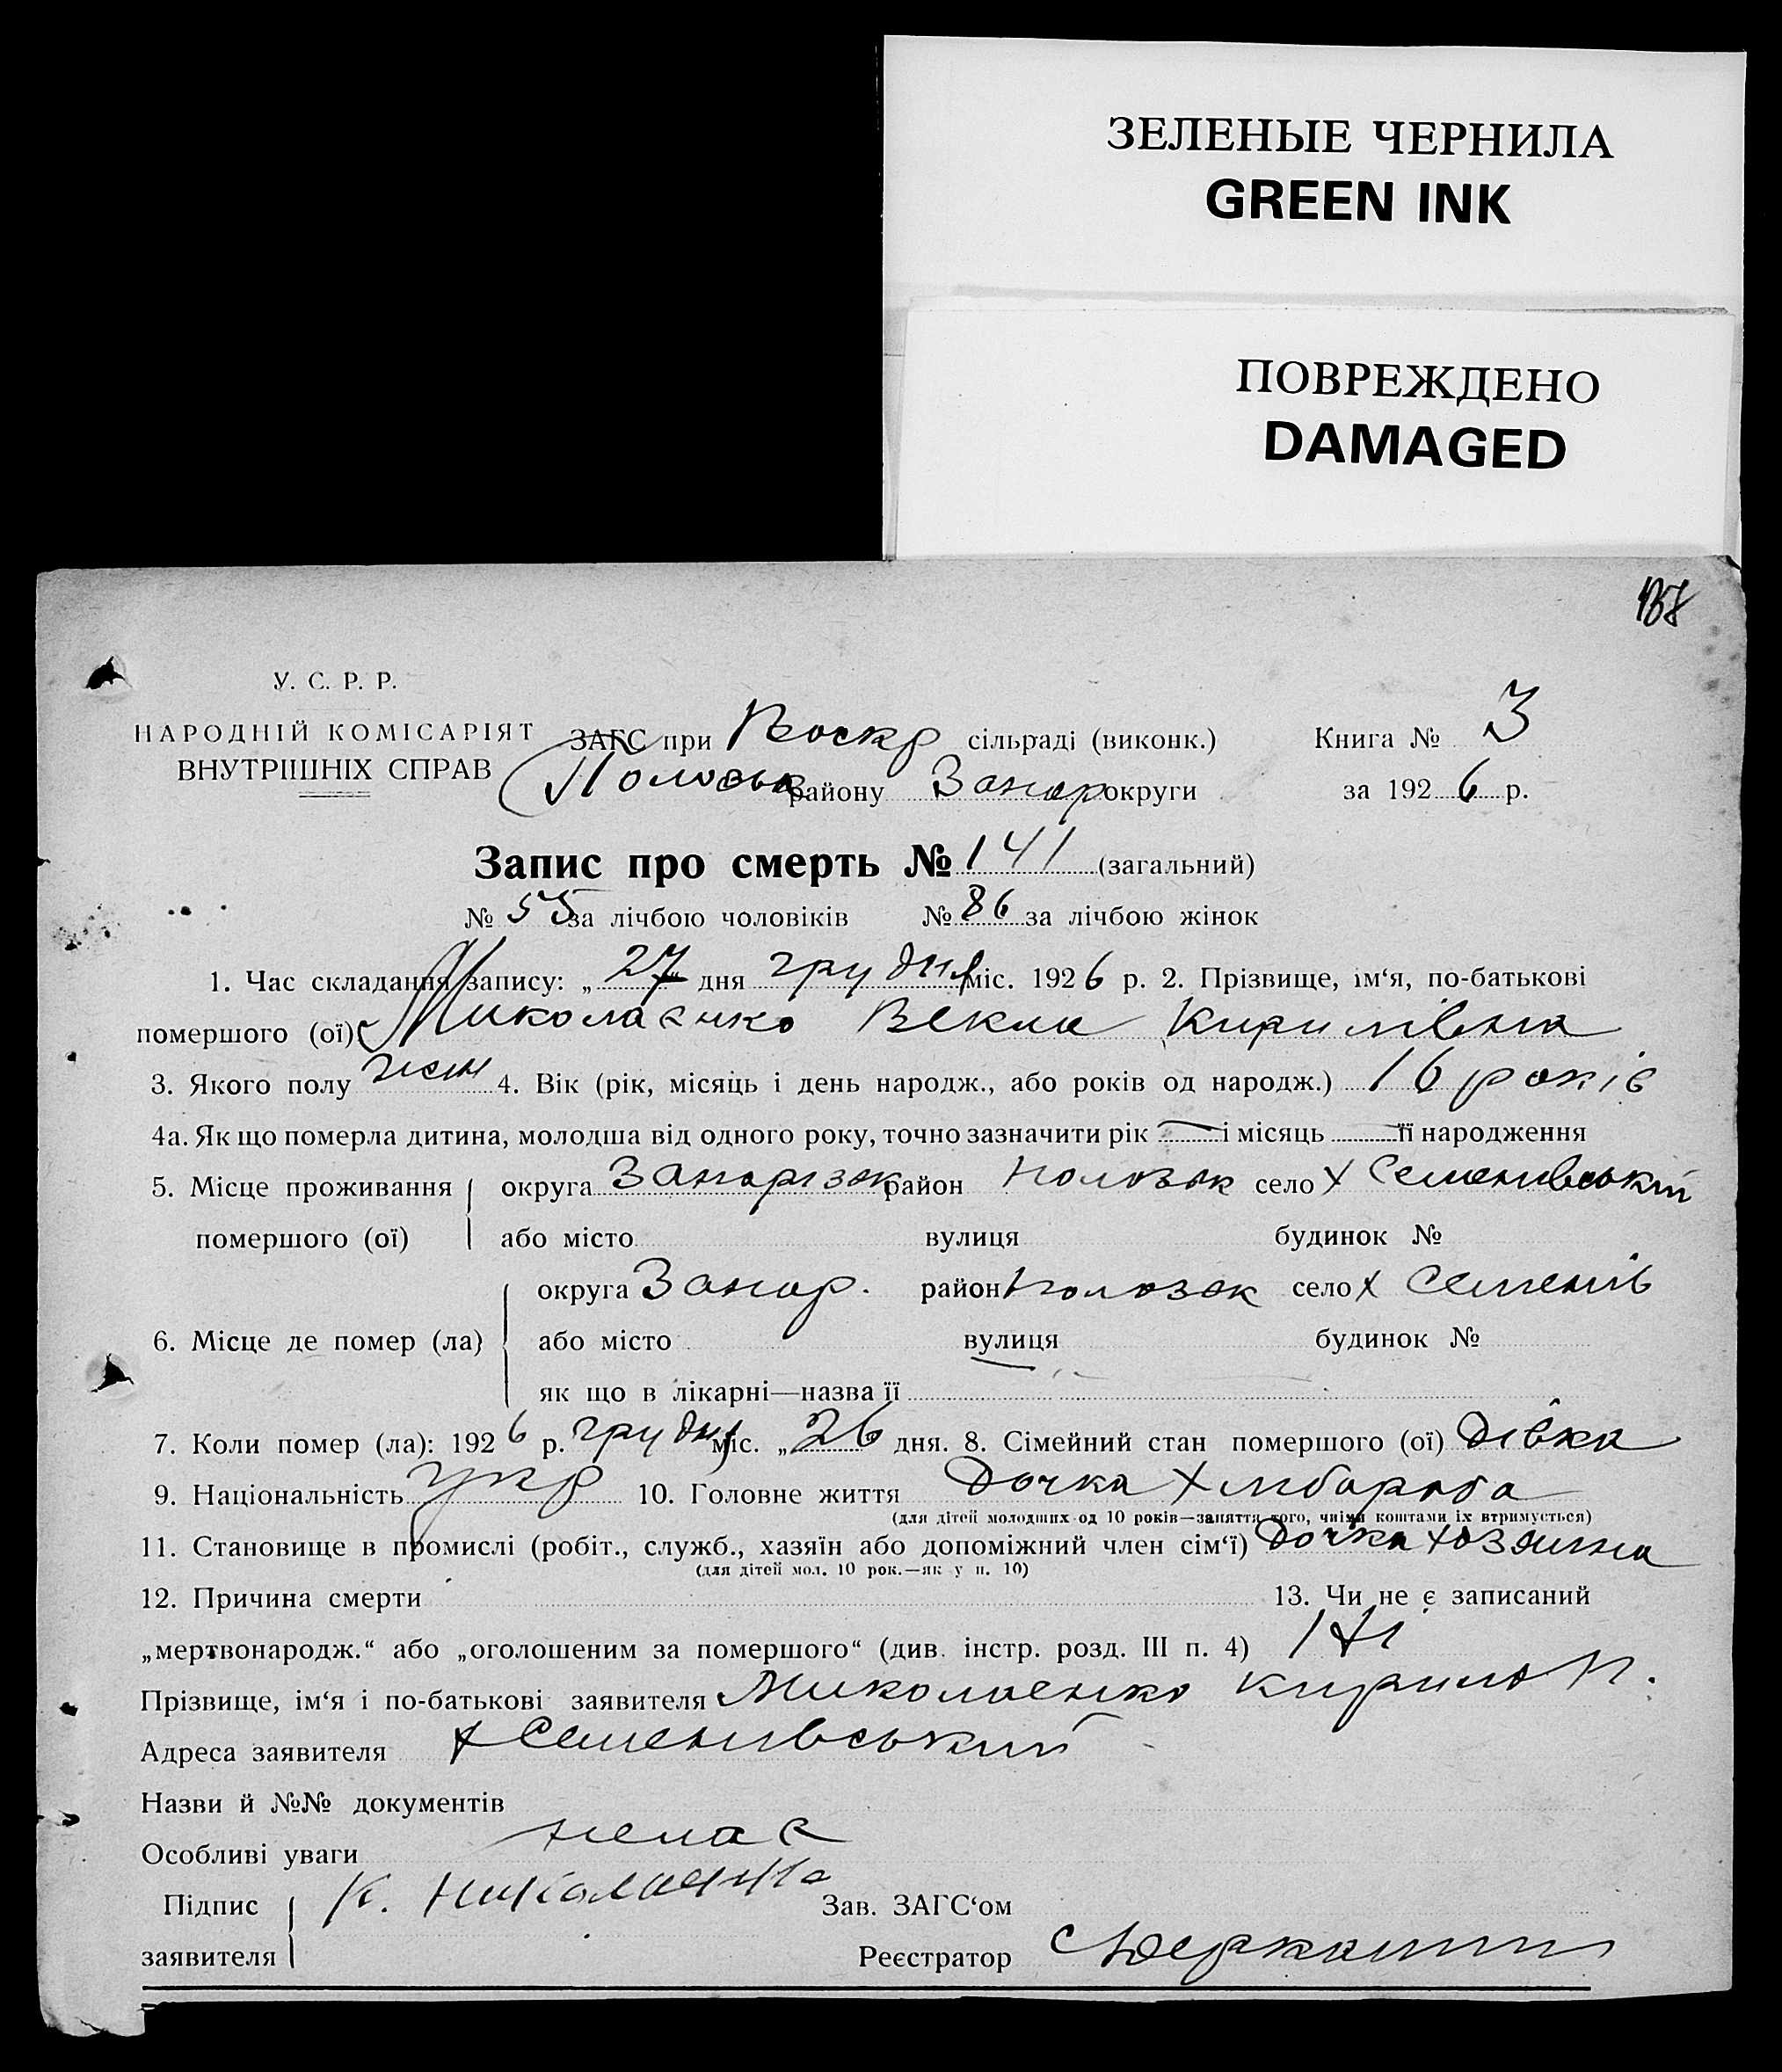 ЗЕЛЕНЫЕ ЧЕРНИЛА
GREEN INK
ПОВРЕЖДЕНО
DAMAGED
У. С. Р. Р.
НАРОДНІЙ КОМІСАРІЯТ
ВНУТРІШНІХ СПРАВ
ЗАГС при Воскр сільраді (виконк.) Книга № 3
району Запор округи за 1926 р.
Запис про смерть № 141 (загальний)
№ 55 за лічбою чоловіків № 86 за лічбою жінок
1. Час складання запису: „27“ дня грудня міс. 1926 р. 2. Прізвище, ім‘я, по-батькові
помершого (ої) Миколаенко Векла Кирилівна
3. Якого полу жен 4. Вік (рік, місяць і день народж., або років од народж.) 16 років
4а. Як що померла дитина, молодша від одного року, точно зазначити рік — і місяць — її народження
5. Місце проживання округа Запорізьк район Полозьк село х Семенівський
помершого (ої) або місто вулиця будинок №
округа Запор. район Полозьк село х Семенів
6. Місце де помер (ла) або місто вулиця будинок №
як що в лікарні—назва її
7. Коли помер (ла): 1926 р. грудня міс. „26 дня. 8. Сімейний стан помершого (ої) дівка
9. Національність укр 10. Головне життя Дочка хлібороба
(для дітей молодших од 10 років—заняття того, чиїми коштами їх втримується)
11. Становище в промислі (робіт., служб., хазяїн або допоміжний член сім‘ї) Дочка хозяина
(для дітей мол. 10 рок.—як у п. 10)
12. Причина смерти 13. Чи не є записаний
„мертвонародж.“ або „оголошеним за помершого“ (див. інстр. розд. III п. 4) Ні
Прізвище, ім‘я і по-батькові заявителя Миколаенко Кирило П.
Адреса заявителя х Семенівський
Назви й №№ документів
Особливі уваги немає
Підпис К. Николаенко Зав. ЗАГС‘ом
заявителя Реєстратор